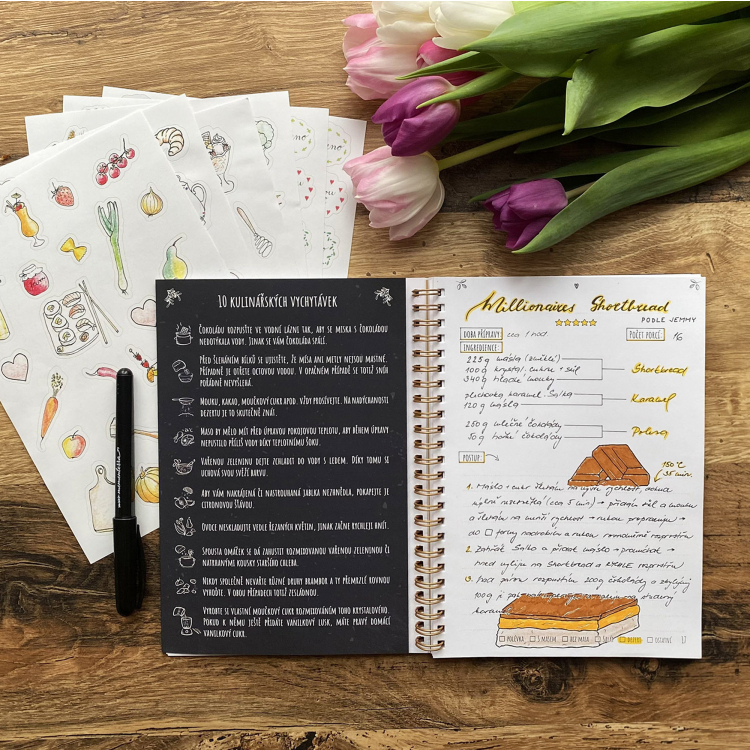 10 KULINÁŘSKÝCH VYCHYTÁVEK
ČOKOLÁDU ROZPUSŤTE VE VODNÍ LÁZNI TAK, ABY SE MISKA S ČOKOLÁDOU
NEDOTÝKALA VODY. JINAK SE VÁM ČOKOLÁDA SPÁLÍ.
PŘED ŠLEHÁNÍM BÍLKŮ SE UJISTĚTE, ŽE MÍSA ANI METLY NEJSOU MASTNÉ.
PŘÍPADNĚ JE OTŘETE OCTOVOU VODOU. V OPAČNÉM PŘÍPADĚ SE TOTIŽ SNÍH
POŘÁDNĚ NEVYŠLEHÁ.
MOUKU, KAKAO, MOUČKOVÝ CUKR APOD. VŽDY PROSÍVEJTE. NA NADÝCHANOSTI
DEZERTU JE TO SKUTEČNĚ ZNÁT.
MASO BY MĚLO MÍT PŘED ÚPRAVOU POKOJOVOU TEPLOTU, ABY BĚHEM ÚPRAVY
NEPUSTILO PŘÍLIŠ VODY DÍKY TEPLOTNÍMU ŠOKU.
VAŘENOU ZELENINU DEJTE ZCHLADIT DO VODY S LEDEM. DÍKY TOMU SE
UCHOVÁ SVOU SVĚŽÍ BARVU.
ABY VÁM NAKRÁJENÁ ČI NASTROUHANÁ JABLKA NEZHNĚDLA, POKAPEJTE JE
CITRONOVOU ŠŤÁVOU.
OVOCE NESKLADUJTE VEDLE ŘEZANÝCH KVĚTIN, JINAK ZAČNE RYCHLEJI HNÍT.
SPOUSTA OMÁČEK SE DÁ ZAHUSTIT ROZMIXOVANOU VAŘENOU ZELENINOU ČI
NATRHANÝMI KOUSKY STARŠÍHO CHLEBA.
NIKDY SPOLEČNĚ NEVAŘTE RŮZNÉ DRUHY BRAMBOR A TY PŘEMRZLÉ ROVNOU
VYHOĎTE. V OBOU PŘÍPADECH TOTIŽ ZESLÁDNOU.
VYROBTE SI VLASTNÍ MOUČKOVÝ CUKR ROZMIXOVÁNÍM TOHO KRYSTALOVÉHO.
POKUD K NĚMU JEŠTĚ PŘIDÁTE VANILKOVÝ LUSK, MÁTE PRAVÝ DOMÁCÍ
VANILKOVÝ CUKR.
Millionaires Shortbread
PODLE JEMMY
DOBA PŘÍPRAVY: cca 1 hod
POČET PORCÍ: 16
INGREDIENCE:
225g másla (změklé)
100g krystal. cukru + sůl
340g hladké mouky
Shortbread
plechovka karamel. Salka
120g másla
Karamel
250g mléčné čokolády
50g hořké čokolády
Poleva
POSTUP:
150°C
35 min.
1. Máslo + cukr
(cca 5 min) → přidám sůl a mouku
do □ formy
2. Zahřát Salko a přidat máslo →
na Shortbread a
3. Nad párou rozpustím 200g čokolády a zbylých
100g
POLÉVKA
S MASEM
BEZ MASA
DEZERT
OSTATNÍ
17